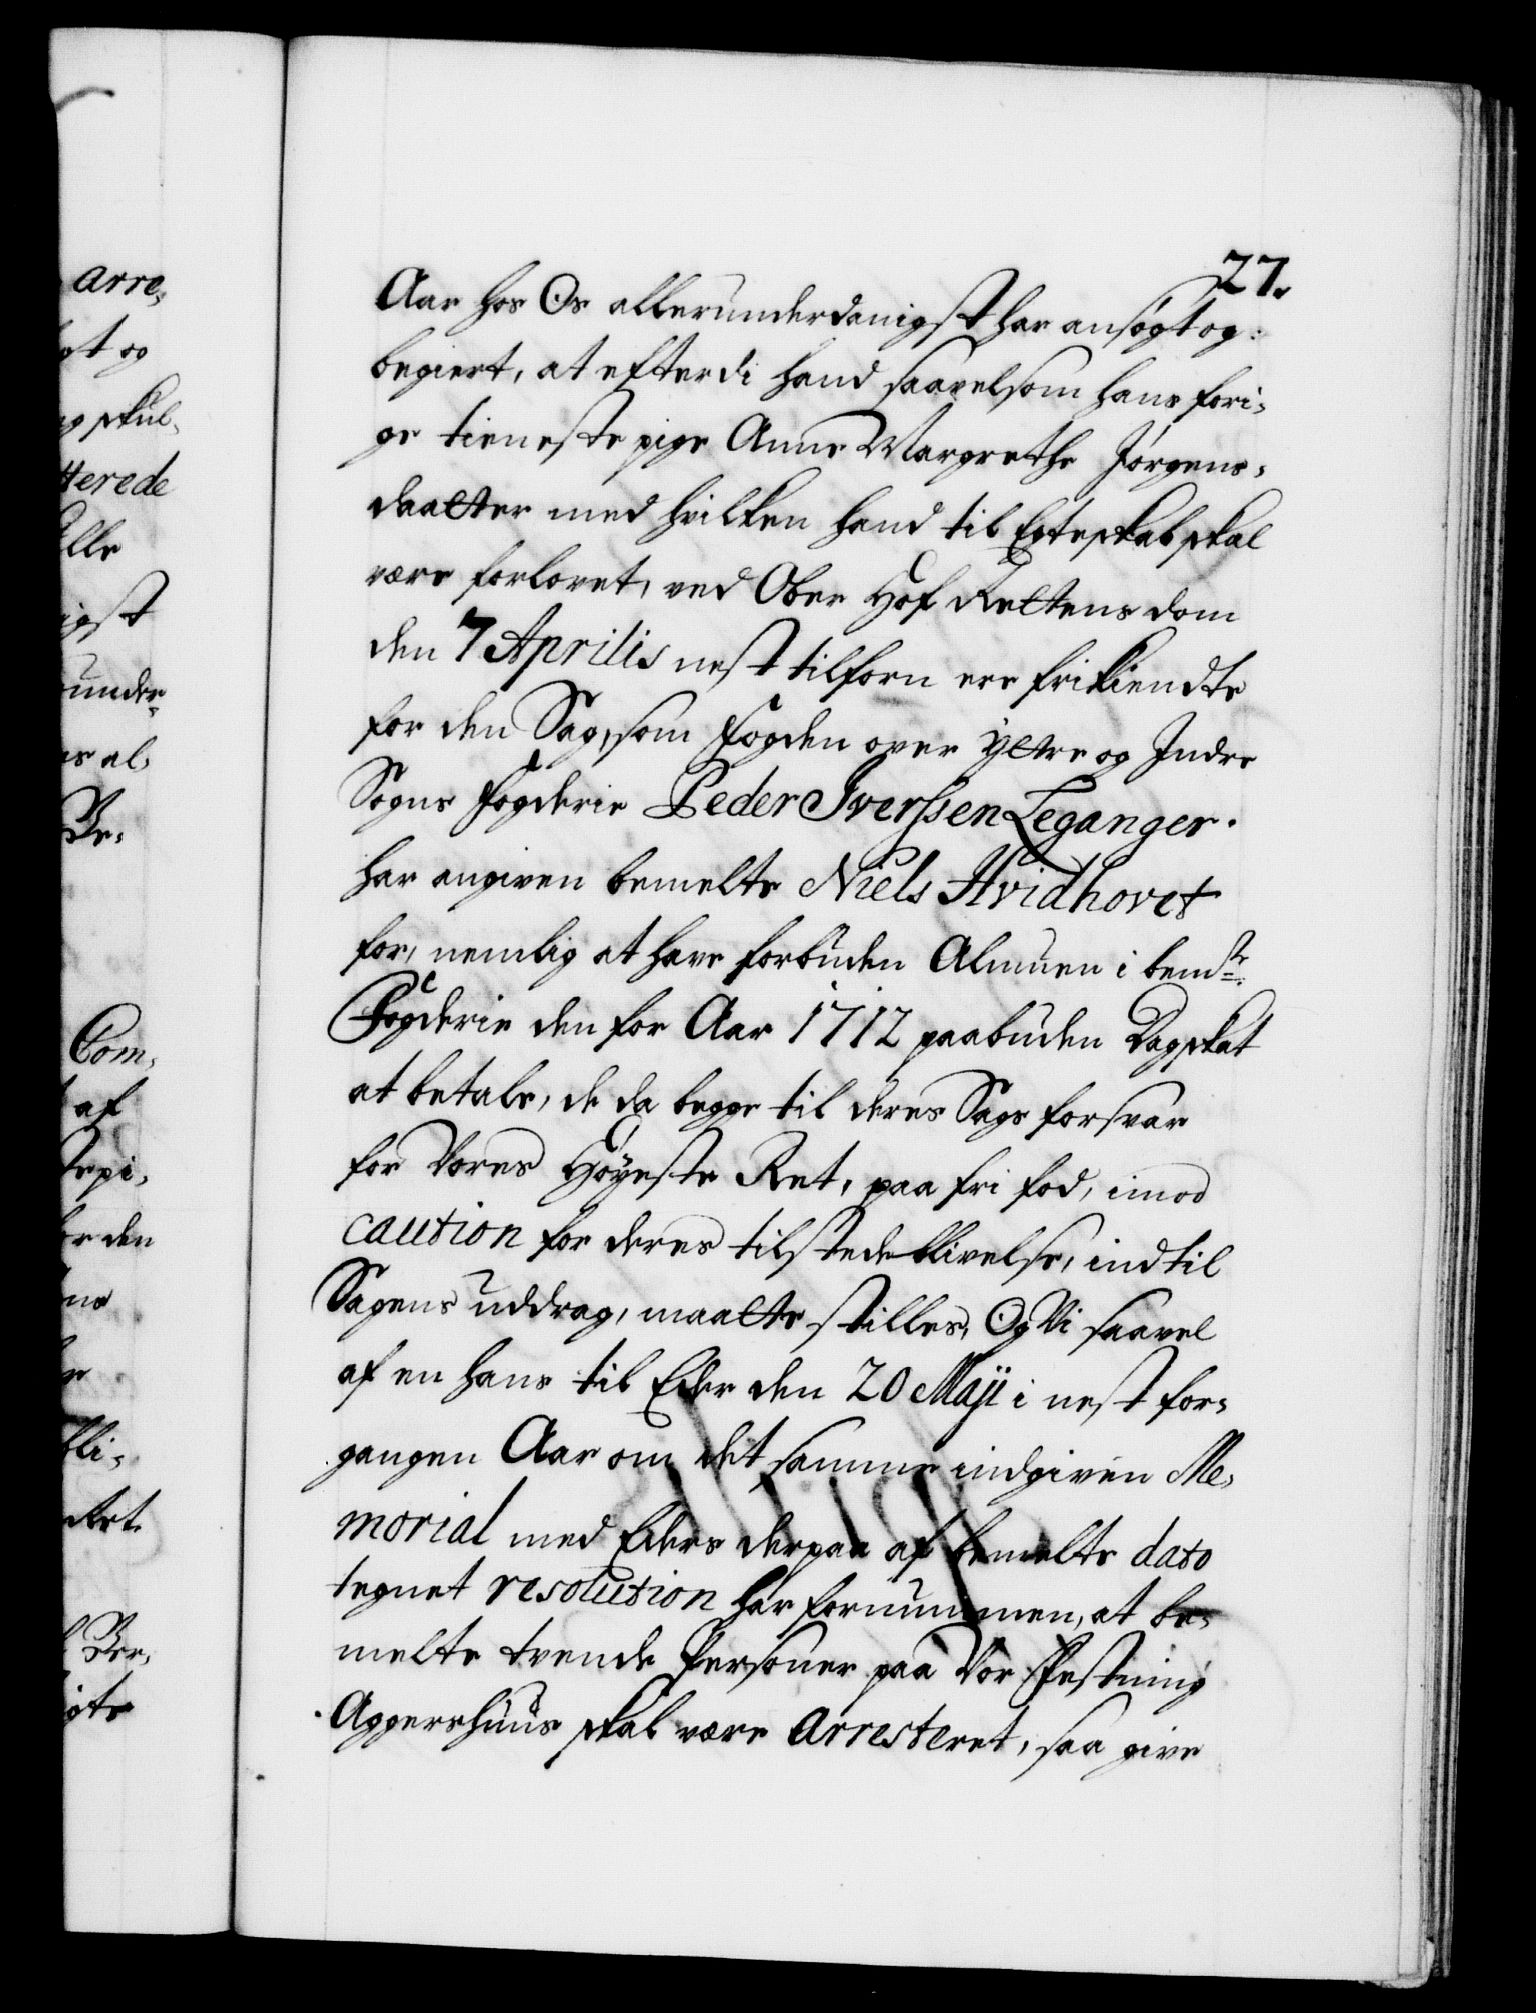 27.
Aar hos Os allerunderdanigst har ansøgt og
begiert, at efterdi hand saavelsom hans fori-
ge tieneste pige Anne Margrethe Jørgens-
daatter med hvilken hand til Egteskab skal
være forlovet, ved Ober Hof Rettens dom
den 7 Aprilis nest tilforn ere frikiendte
for den Sag, som Fogden over Yttre og Indre
Sogns fogderie Peder Iverssen Leganger.
har angiven bemelte Niels Hvidhovet
for, nemlig at have forbuden Almuen i bemte
Fogderie den for Aar 1712 paabuden Dagskat
at betale, de da begge til deres Sags forsvar
for Vores Høyeste Ret, paa fri fod, imod
caution for deres tilstedeblivelse, indtil
Sagens uddrag, maatte stilles, Og Vi saavel
af en hans til Eder den 20 Maji i nest for-
gangen Aar om det samme indgiven Me-
morial med Eders derpaa af bemelte dato
tegnet resolution har fornummen, at be-
melte tvende Personer paa Vor Festning
Aggershuus skal være arresteret, saa give
arre-
gt og
og skul-
tterede
lle
igst
under-
al
Be-
Com-
af
den
bli-
Ret
Ber-
igte